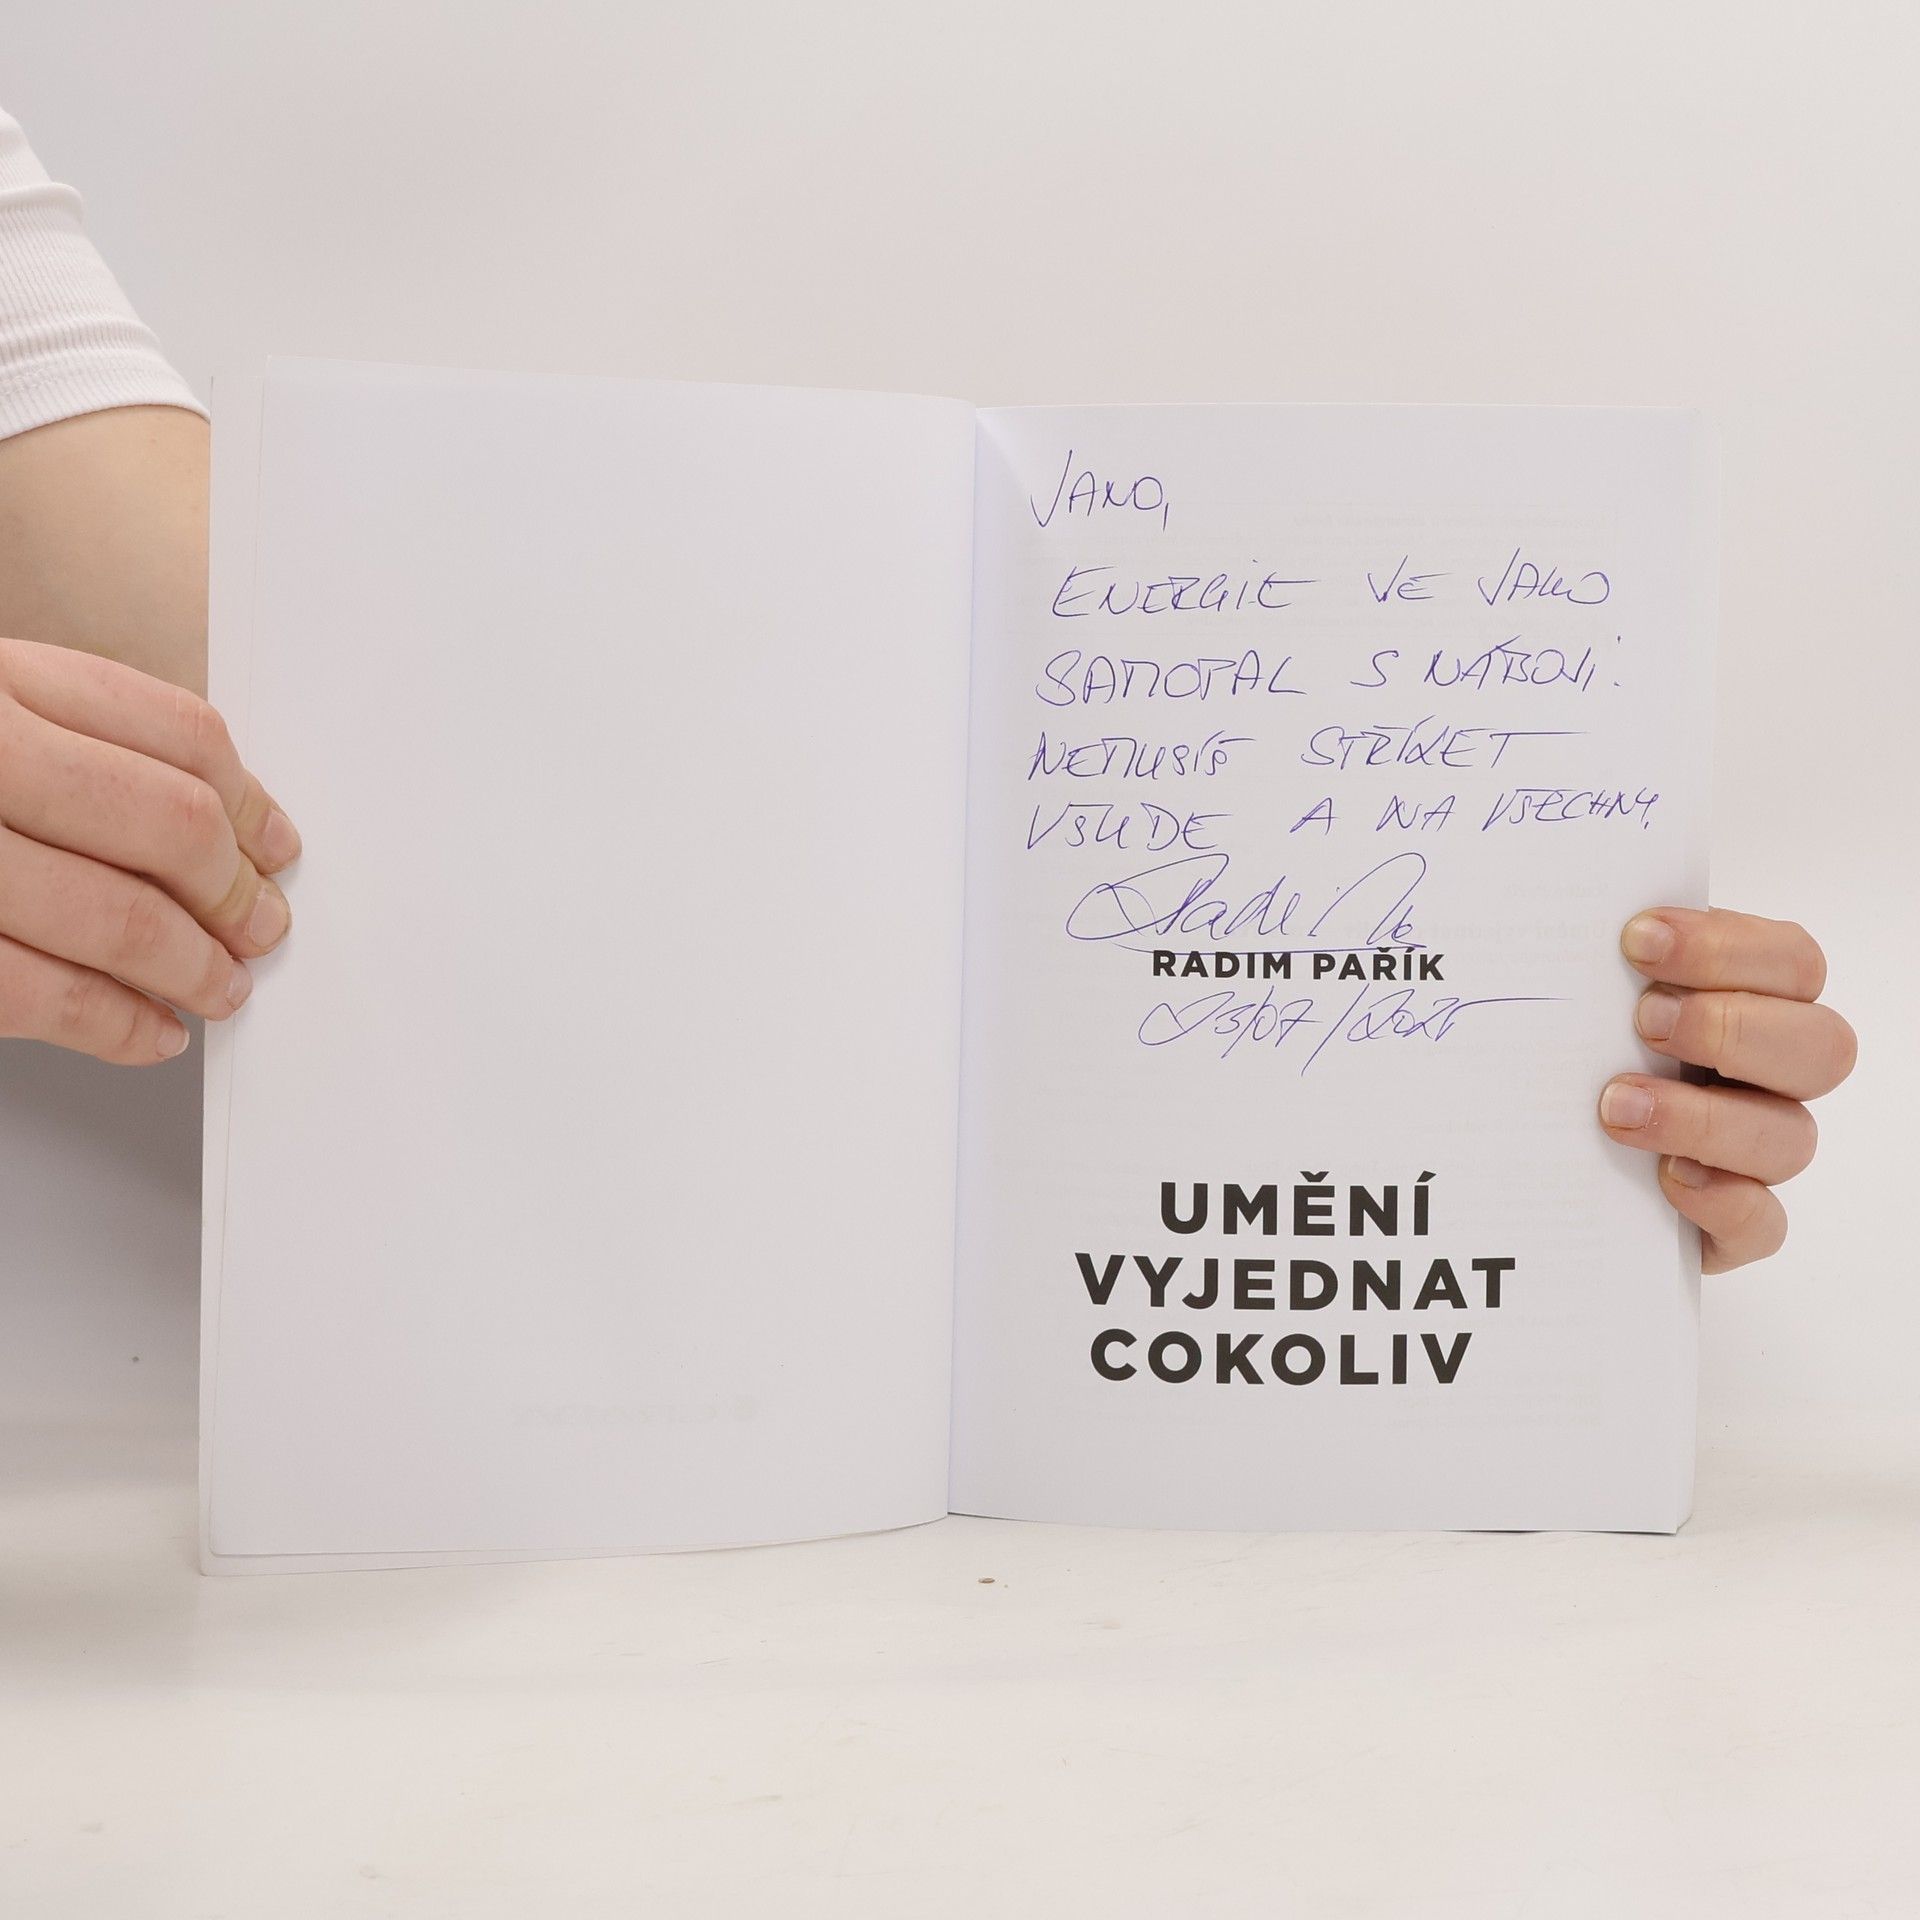 JANO,
ENERGIE VE JAKO
SAMOPAL S NÁBOJI.
NEMUSÍŠ STŘÍLET
VŠUDE A NA VŠECHNY.
RADIM PAŘÍK
23/07/2025
UMĚNÍ
VYJEDNAT
COKOLIV